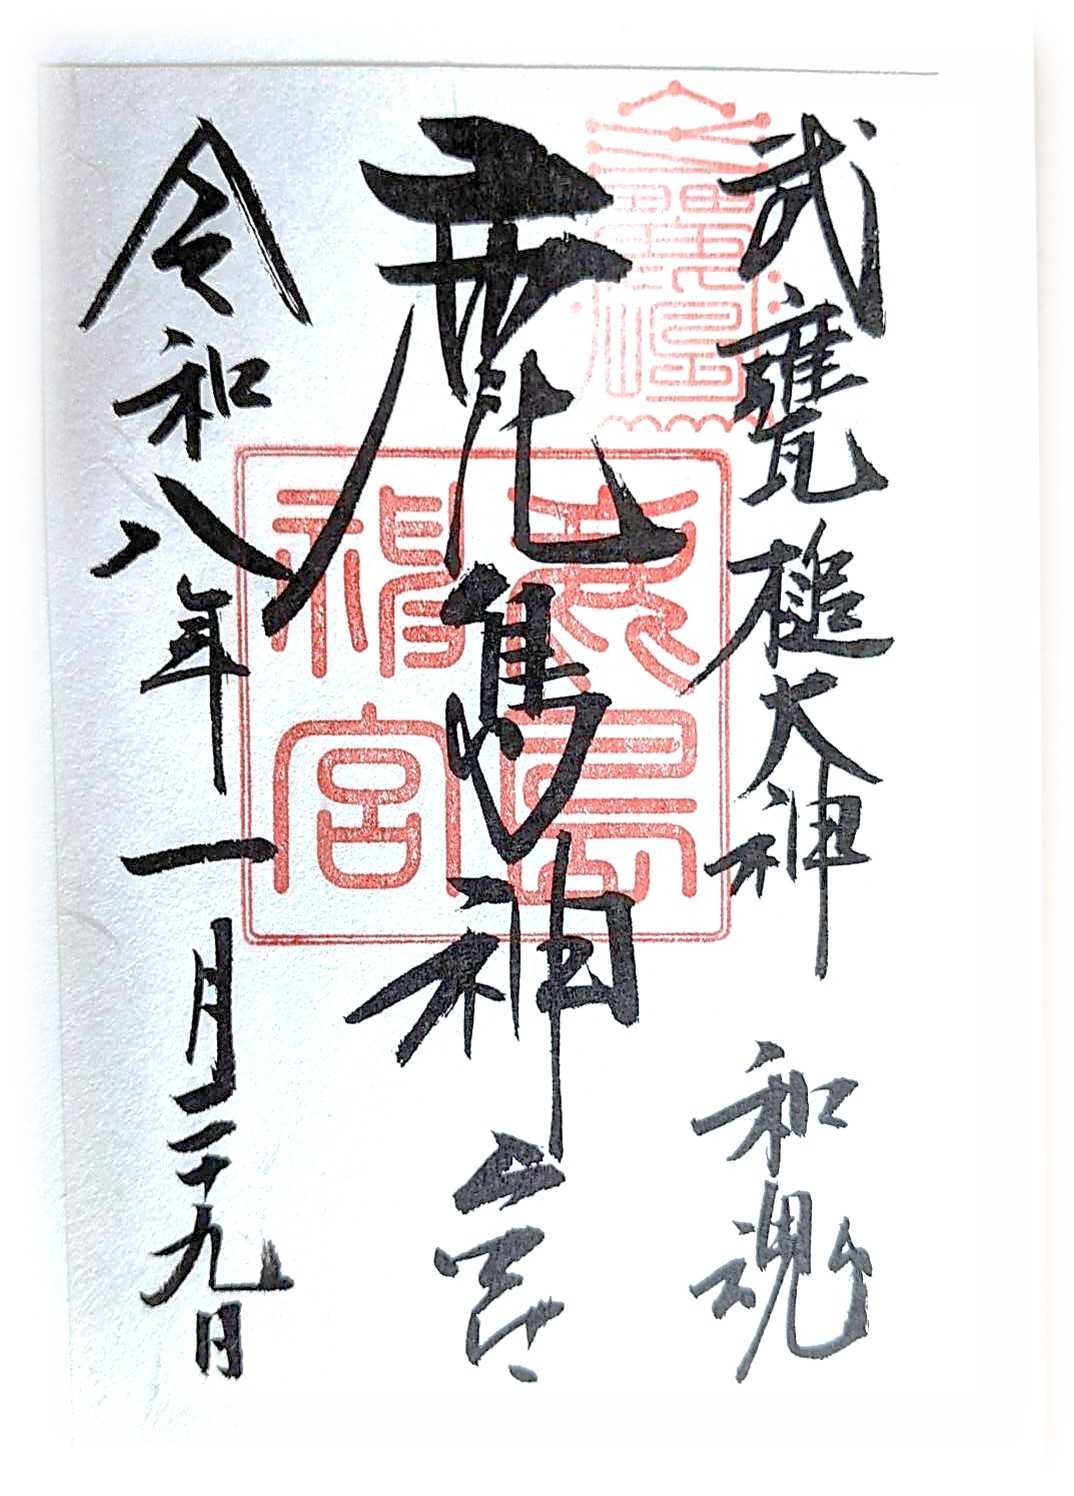 武甕槌大神 和魂
鹿島神宮
令和八年一月二十九日
鹿島神宮